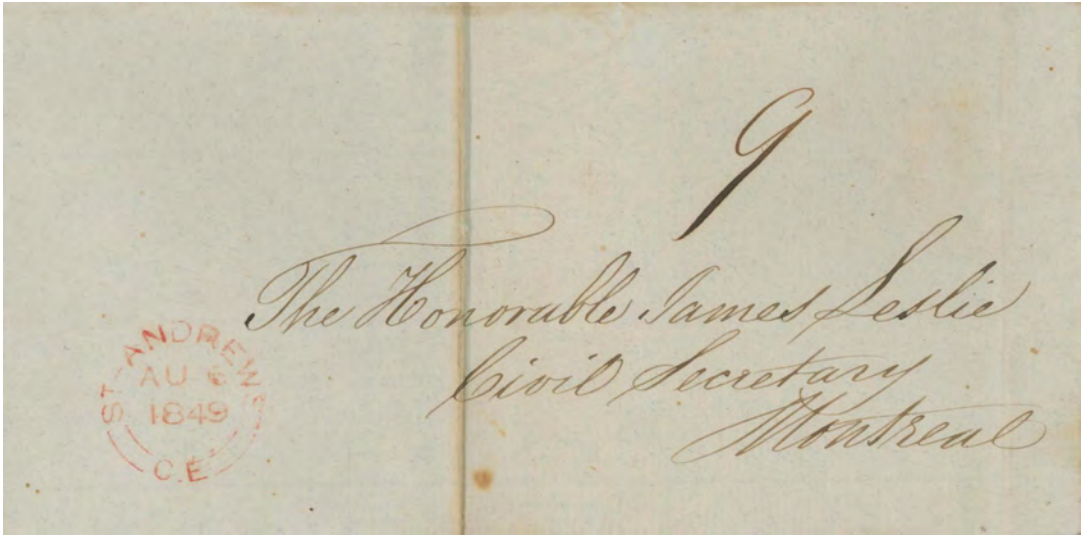 9
The Honorable James Leslie
Civil Secretary
Montreal
ST. ANDREWS
AU 6
1849
C.E.